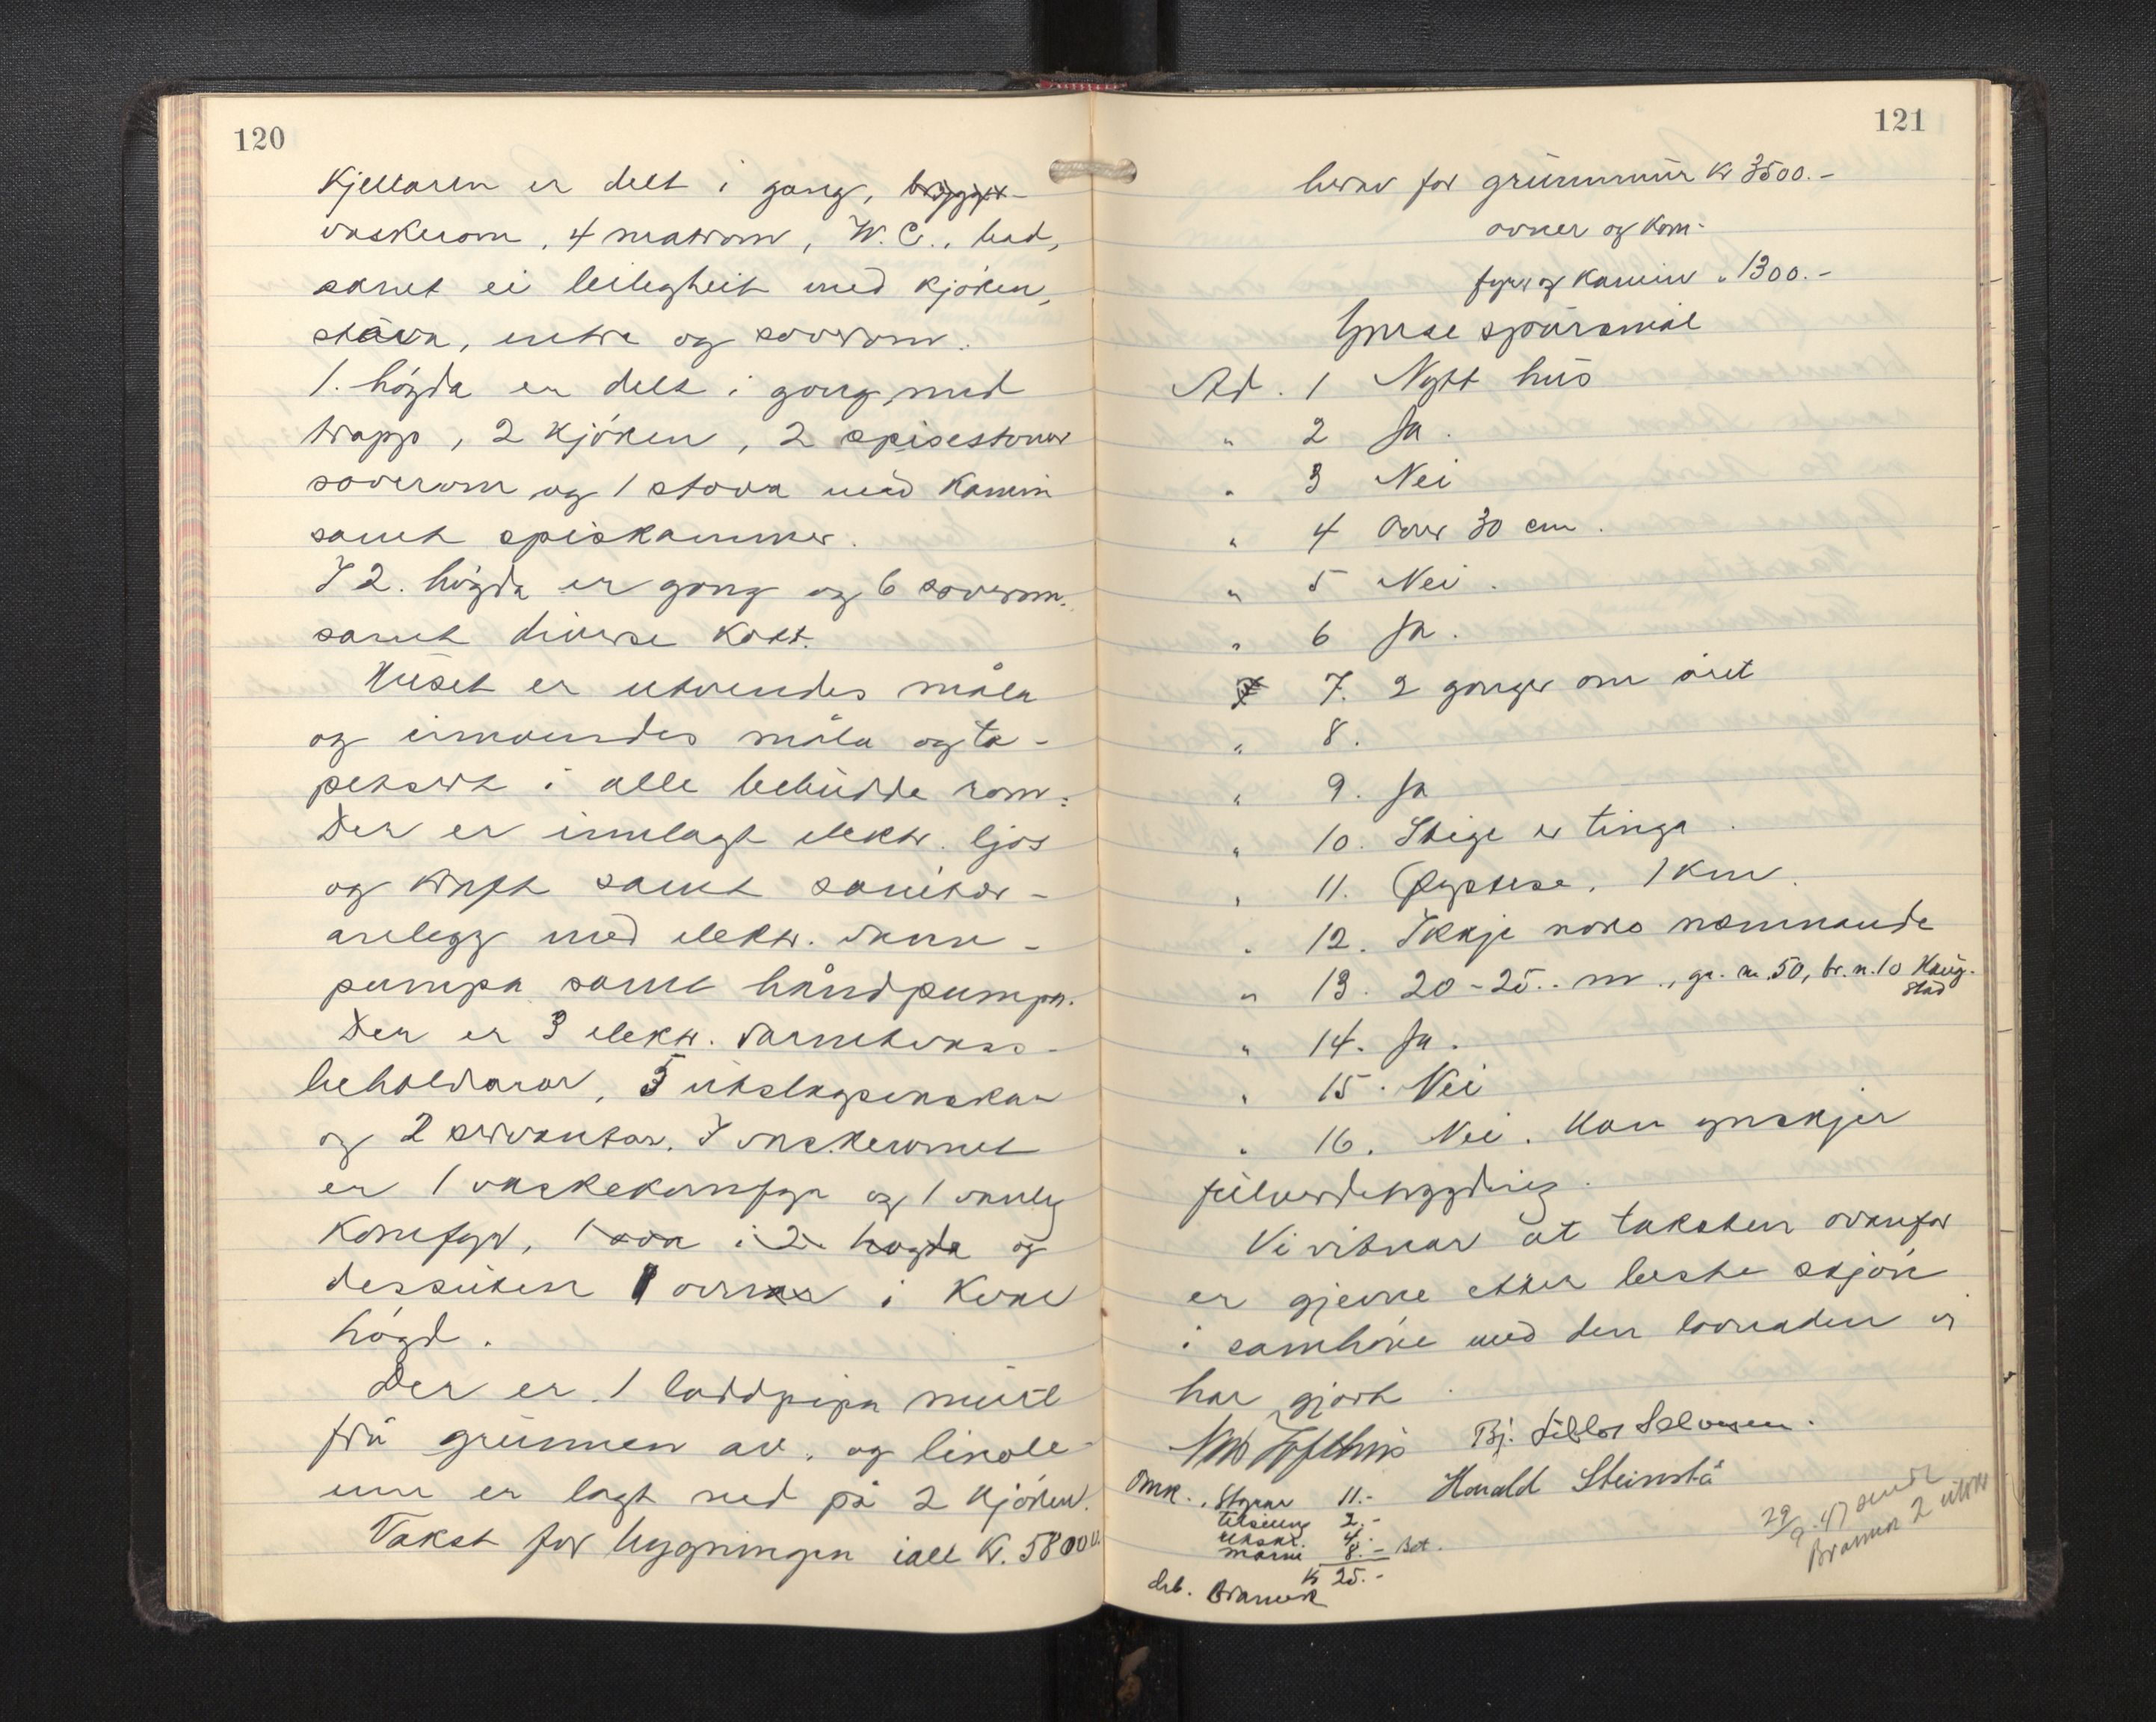 120
Kjellaren er delt i gang, bryggje-
vaskerom, 4 matrom, W.C., bad,
samt ei leilegheit med kjøken,
stova, entre og soverom.
1. högda er delt i gong med
trapp, 2 kjöken, 2 spisestover
soverom og 1 stova med kamin
samt spiskammer.
I 2. högda er gong og 6 soverom.
samt diverse kott.
Huset er utvendes måla
og innvendes måla og ta-
petsert i alle bebudde rom.
Der er innlagt elektr. ljos
og kraft samt sanitær-
anlegg med elektr. vann-
pumpa samt håndpumpa.
Der er 3 elektr. varmtvass-
beholdarar, 5 utslagsvaskar
og 2 servantar. I vaskeromet
er 1 vaskekomfyr og 1 vanleg
komfyr, 1 ovn i 2. høgda og
dessuten 1 ovnar i kvar
högd.
Der er 1 loddpipa murt
frå grunnen av. og linole-
um er lagt ned på 2 kjöken.
Takst for bygningen ialt Kr. 58000.
121
herav for grunnmur Kr 3500.-
ovner og kom-
fyr og kamin " 1300.-
Ymse spursmål
Ad. 1 Nytt hus
" 2 Ja.
" 3 Nei
" 4 Over 30 cm.
" 5 Nei.
" 6 Ja.
7. 2 gonger om året
" 8.
" 9. Ja
" 10. Stige er tinga.
" 11. Øystese, 1 km.
" 12. Ikkje noko nemnande
" 13. 20-25.. m., gr. nr. 50, br. n. 10 Haug-
stad
" 14. Ja.
" 15. Nei
" 16. Nei. Han ynskjer
fullverdetrygding.
Vi vitnar at taksten ovanfor
er gjevne etter beste skjön
i samhöve med den lovnaden vi
har gjort.
Tofthus Bj. Salvesen.
Omk. Styrar 11.- Harald Steinstø
Tilseing 2.-
Utskr. 4.-
Marne 8.- Bet.
Kr 25.-
deb. Brannk
29/9.47 sendt
Brannk 2 utskr